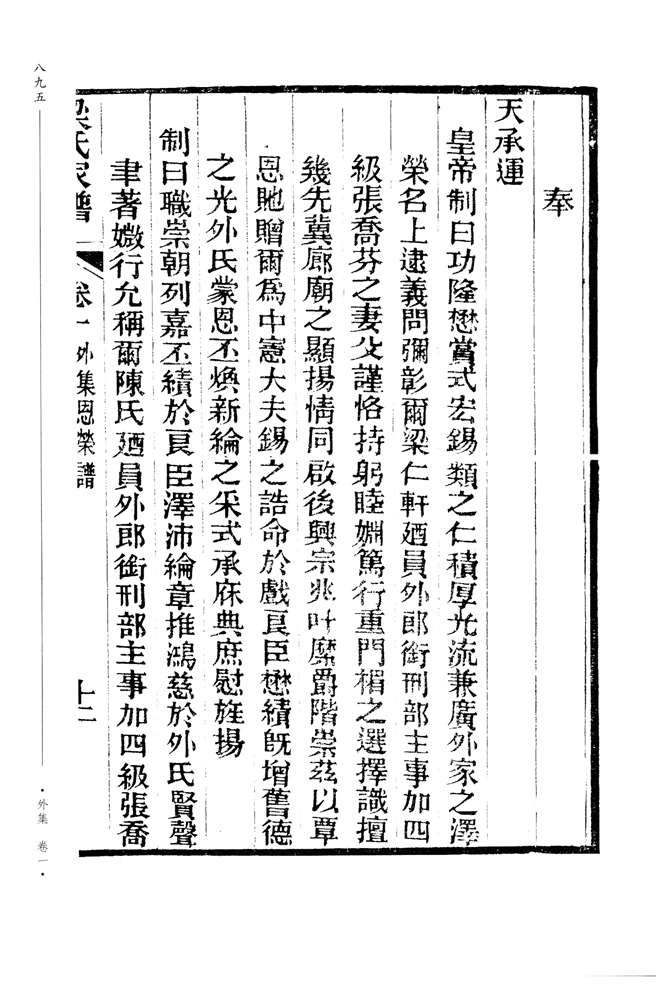 奉
天承運
皇帝制曰功隆懋賞式宏錫類之仁積厚光流兼廣外家之澤
榮名上逮義問彌彰爾梁仁軒廼員外郎銜刑部主事加四
級張喬芬之妻父謹恪持躬睦婣篤行重門楣之選擇識擅
幾先冀廊廟之顯揚情同啟後興宗兆叶縻爵階崇茲以覃
恩貤贈爾為中憲大夫錫之誥命於戲良臣懋績旣增舊德
之光外氏蒙恩丕煥新綸之采式承庥典庶慰旌揚
制曰職崇朝列嘉丕績於良臣澤沛綸章推鴻慈於外氏賢聲
聿著媺行允稱爾陳氏廼員外郎銜刑部主事加四級張喬
梁氏家譜 卷一外集恩榮譜 十二
八九五
·外集 卷一·